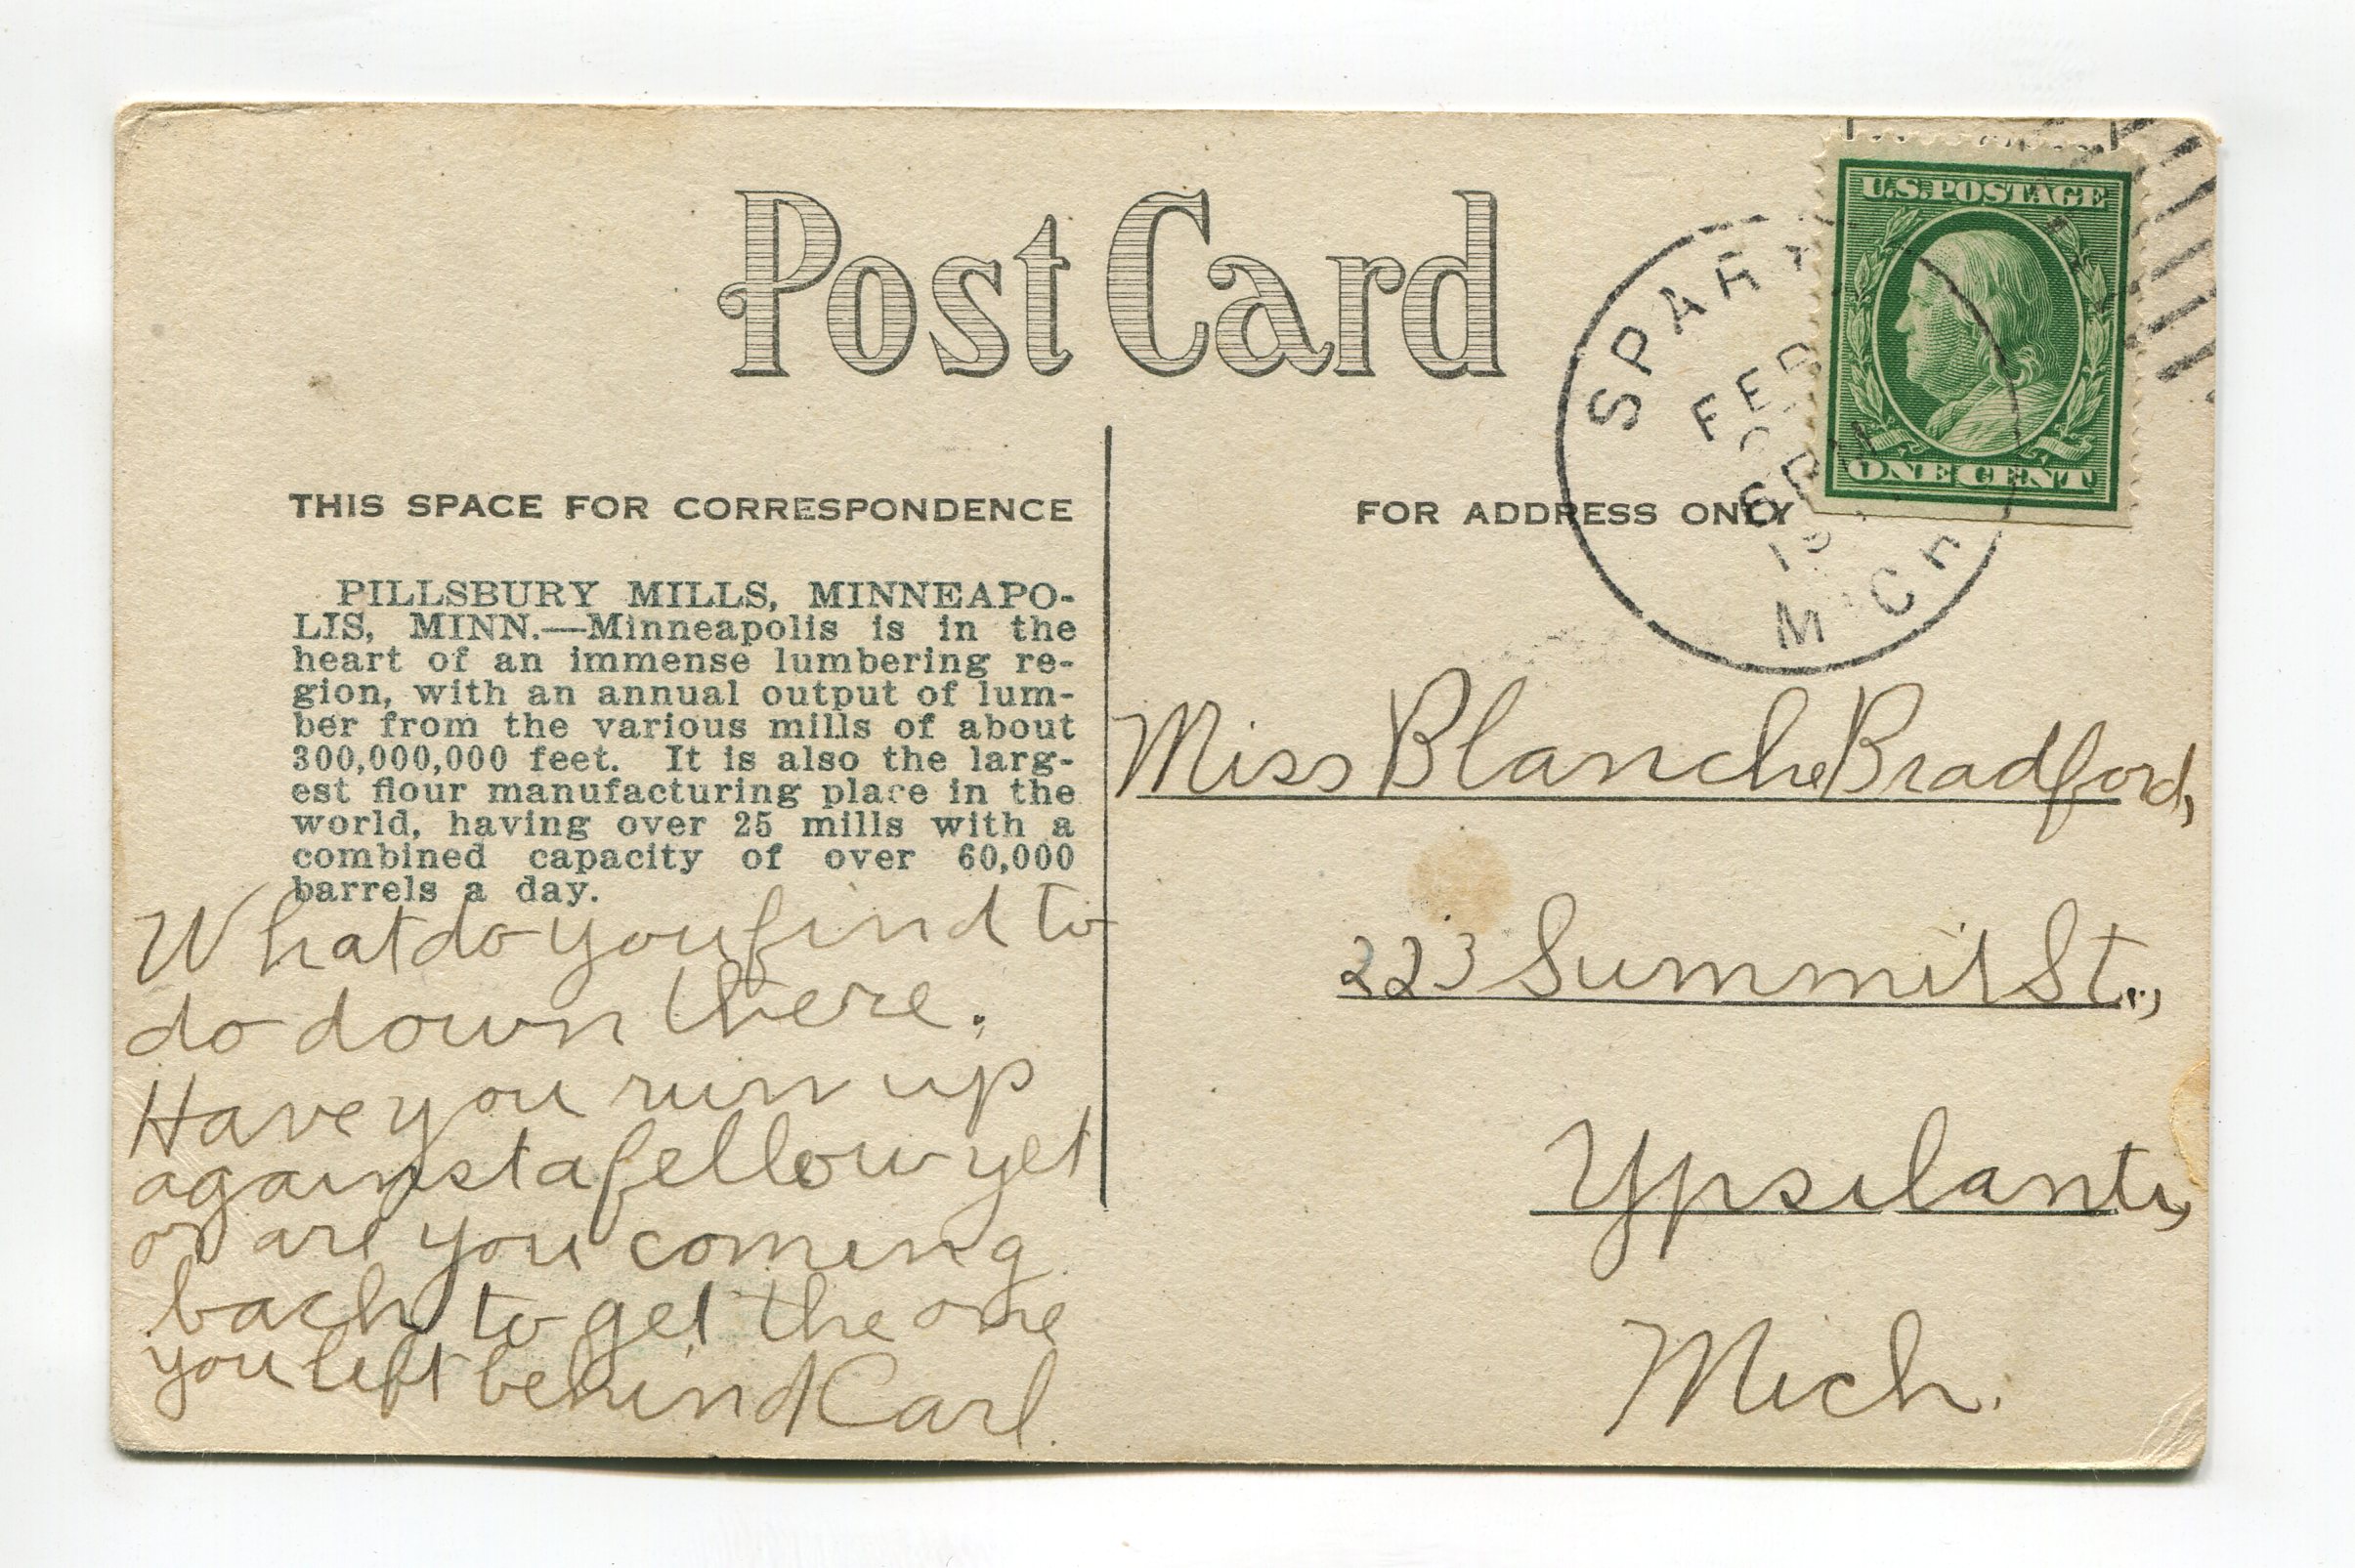 Post Card
U.S. POSTAGE
ONE CENT
SPARTA
FEB
6 PM
19
MICH
THIS SPACE FOR CORRESPONDENCE
FOR ADDRESS ONLY
PILLSBURY MILLS, MINNEAPO-
LIS, MINN.—Minneapolis is in the
heart of an immense lumbering re-
gion, with an annual output of lum-
ber from the various mills of about
300,000,000 feet. It is also the larg-
est flour manufacturing place in the
world, having over 25 mills with a
combined capacity of over 60,000
barrels a day.
What do you find to
do down there.
Have you run up
against a fellow yet
or are you coming
back to get the one
you left behind Carl.
Miss Blanche Bradford,
223 Summit St.,
Ypsilanti,
Mich.